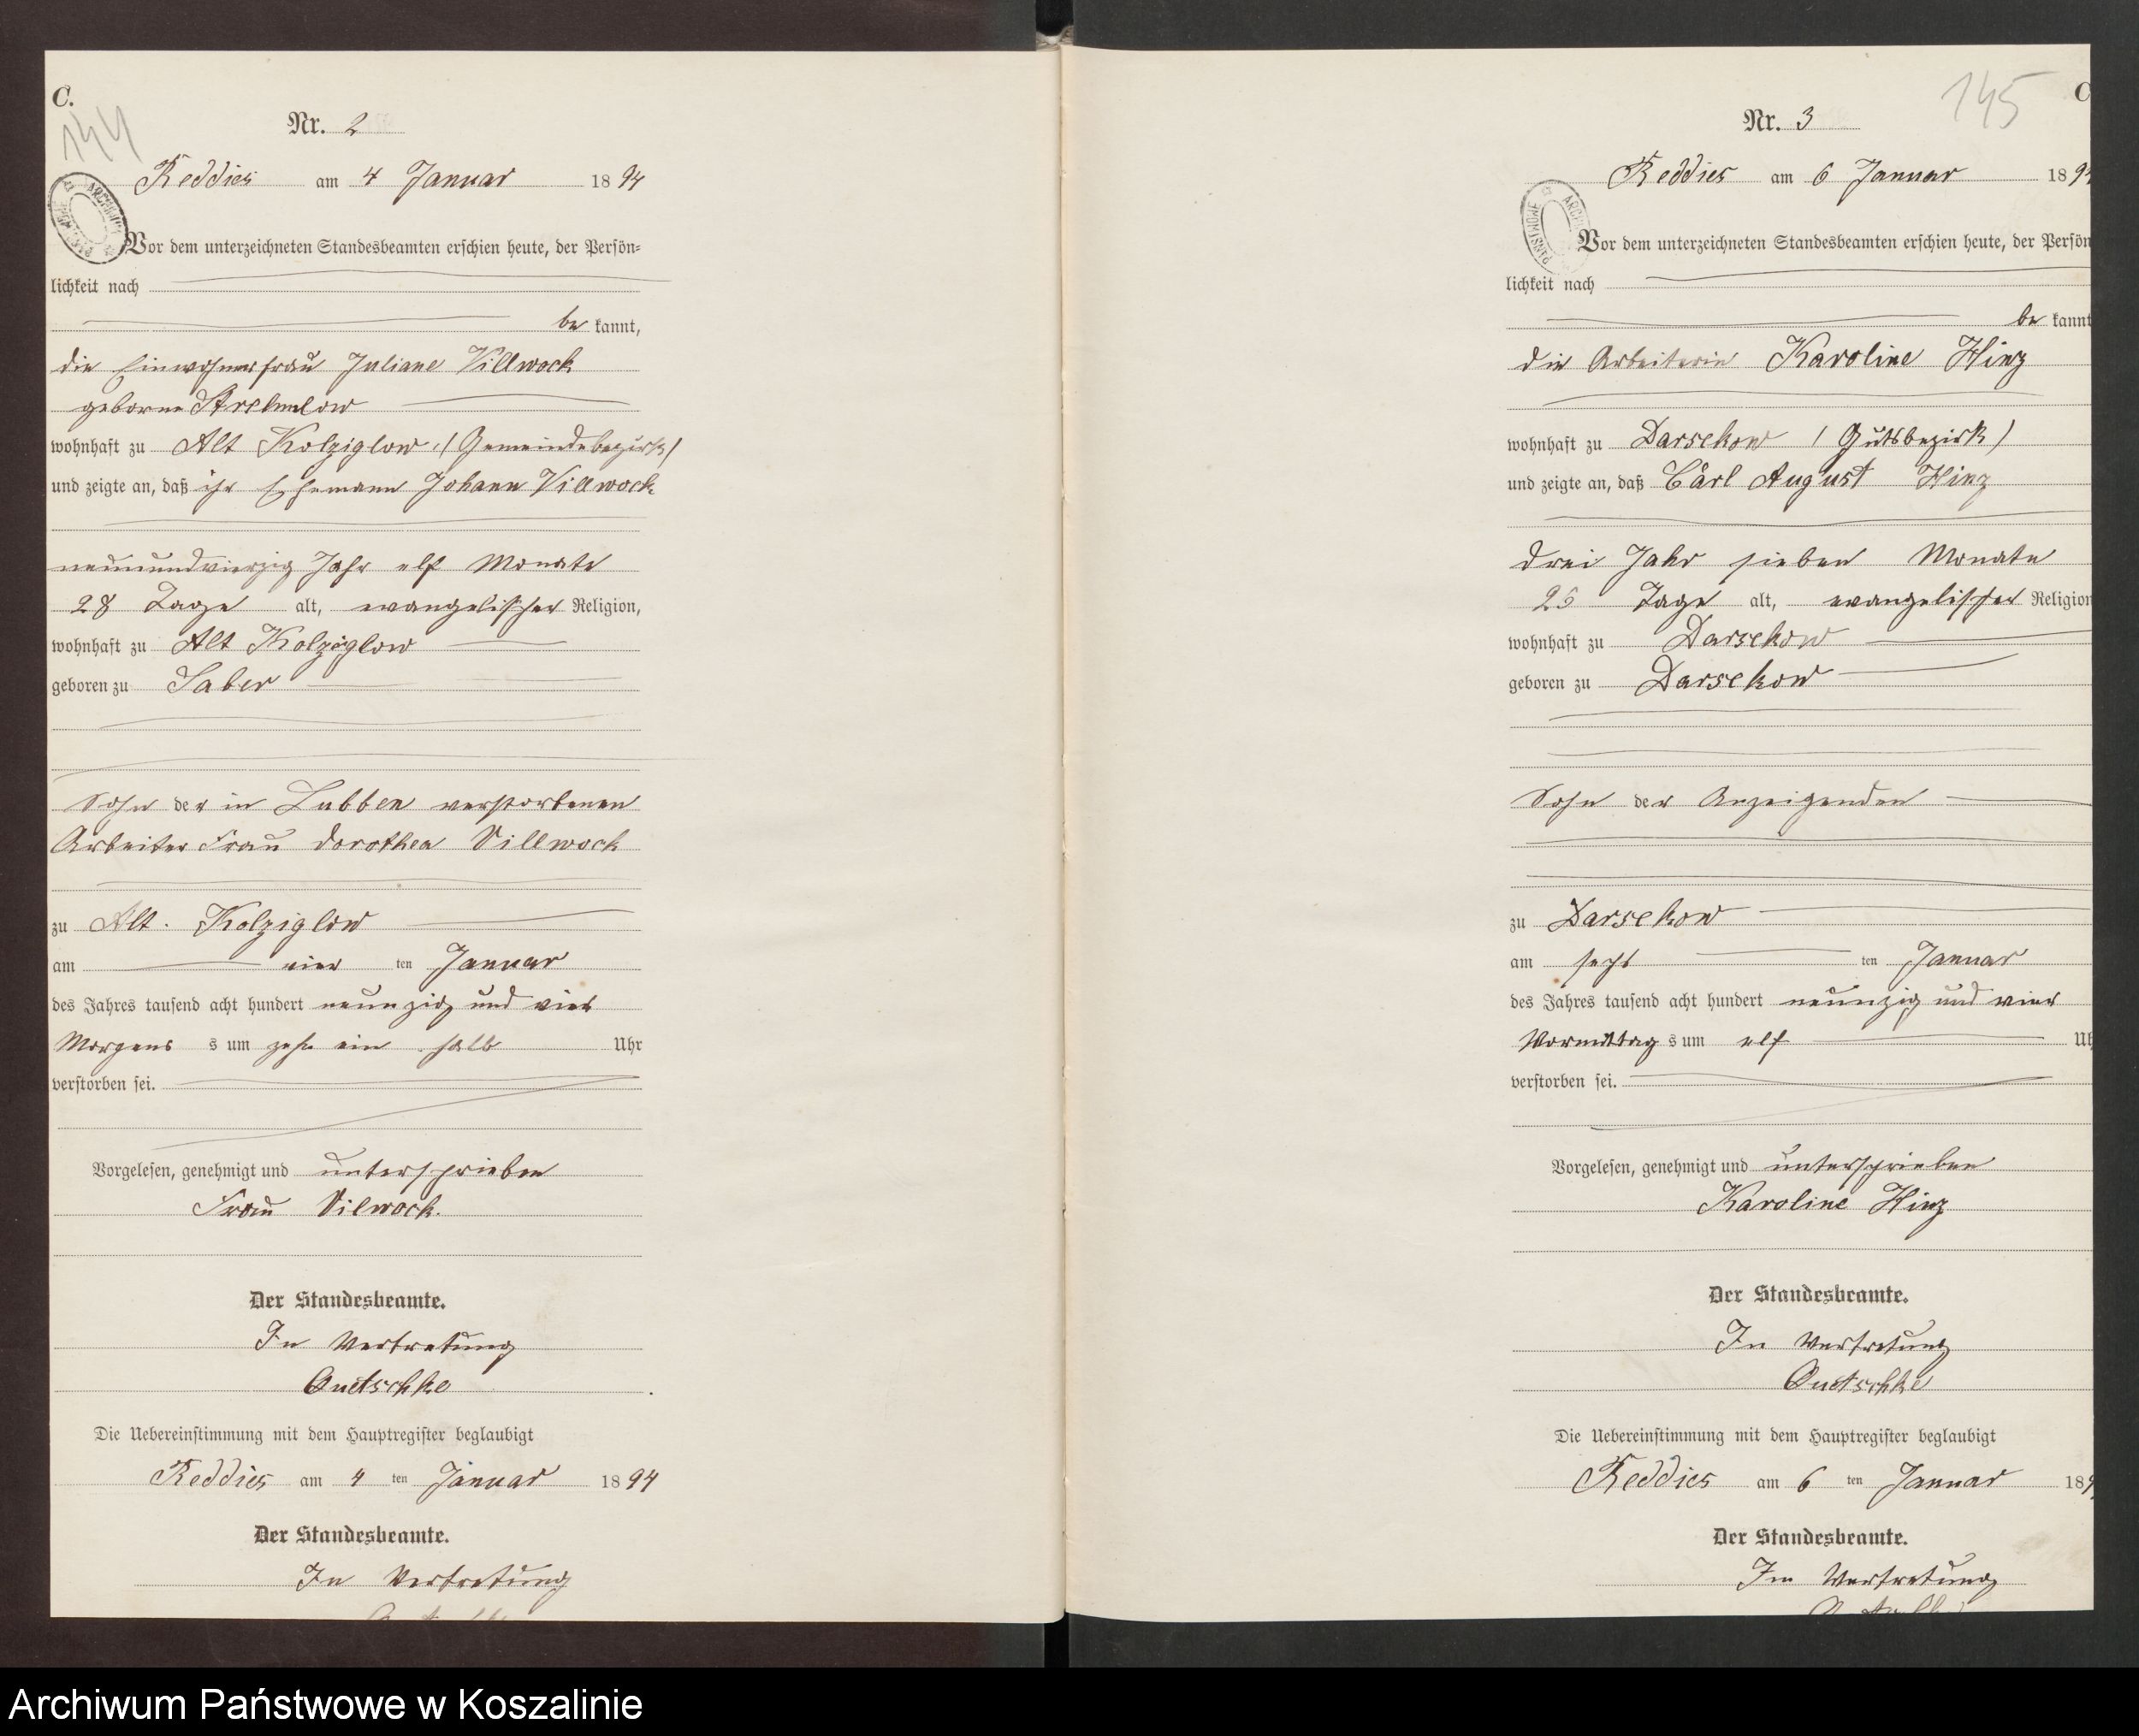 C.
144
Nr. 2
Reddies am 4 Januar 1894
Vor dem unterzeichneten Standesbeamten erschien heute, der Persön=
lichkeit nach
be kannt,
die Einwohnerfrau Juliane Villwock
geborne
wohnhaft zu Alt Kolziglow, (Gemeindebezirk)
und zeigte an, daß ihr Ehemann Johann Villwock
neunundvierzig Jahr elf Monate
28 Tage alt, evangelischer Religion,
wohnhaft zu Alt Kolziglow
geboren zu Saber
Sohn der in Lubben verstorbenen
Arbeiter Frau Dorothea Villwock
zu Alt. Kolziglow
am vier ten Januar
des Jahres tausend acht hundert neunzig und vier
Morgens s um zehn ein halb Uhr
verstorben sei.
Vorgelesen, genehmigt und unterschrieben
Frau Vilwock.
Der Standesbeamte.
In Vertretung
Quetschke
Die Uebereinstimmung mit dem Hauptregister beglaubigt
Reddies am 4 ten Januar 1894
Der Standesbeamte.
In Vertretung
145
C
Nr. 3
Reddies am 6 Januar 189
ARCHI
PAŃSTWOWE
Vor dem unterzeichneten Standesbeamten erschien heute, der Persön
lichkeit nach
be kannt
die Arbeiterin Karoline Hinz
wohnhaft zu Darsekow (Gutsbezirk)
und zeigte an, daß Carl August Hinz
drei Jahr sieben Monate
Tage alt, evangelischer Religion
wohnhaft zu Darsekow
geboren zu Darsekow
Sohn der Anzeigenden
zu Darsekow
am sechs ten Januar
des Jahres tausend acht hundert neunzig und vier
Vormittag s um elf Uh
verstorben sei.
Vorgelesen, genehmigt und unterschrieben
Karoline Hinz
Der Standesbeamte.
In Vertretung
Quetschke
Die Uebereinstimmung mit dem Hauptregister beglaubigt
Reddies am 6 ten Januar 189
Der Standesbeamte.
In Vertretung
Archiwum Państwowe w Koszalinie